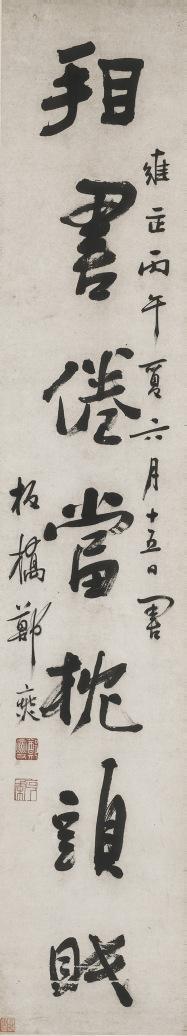 雍正丙午夏六月十五日書
看書倦當枕頭眠
板橋鄭燮